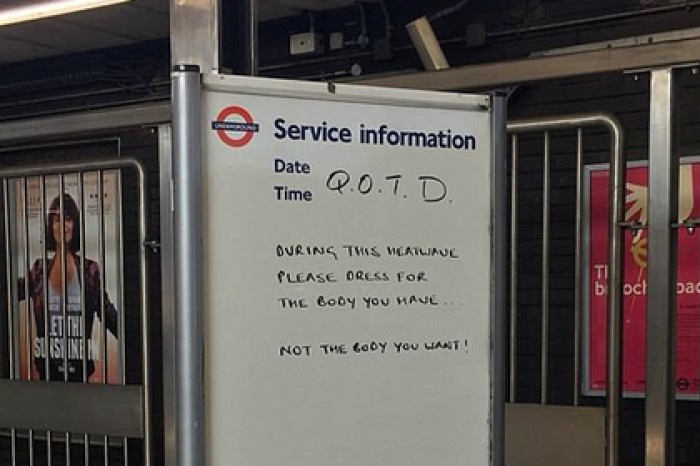 UNDERGROUND
Service information
Date
Time
Q.O.T.D.
DURING THIS HEATWAVE
PLEASE DRESS FOR
THE BODY YOU HAVE ...
NOT THE BODY YOU WANT!
LET THE
SUNSHINE IN